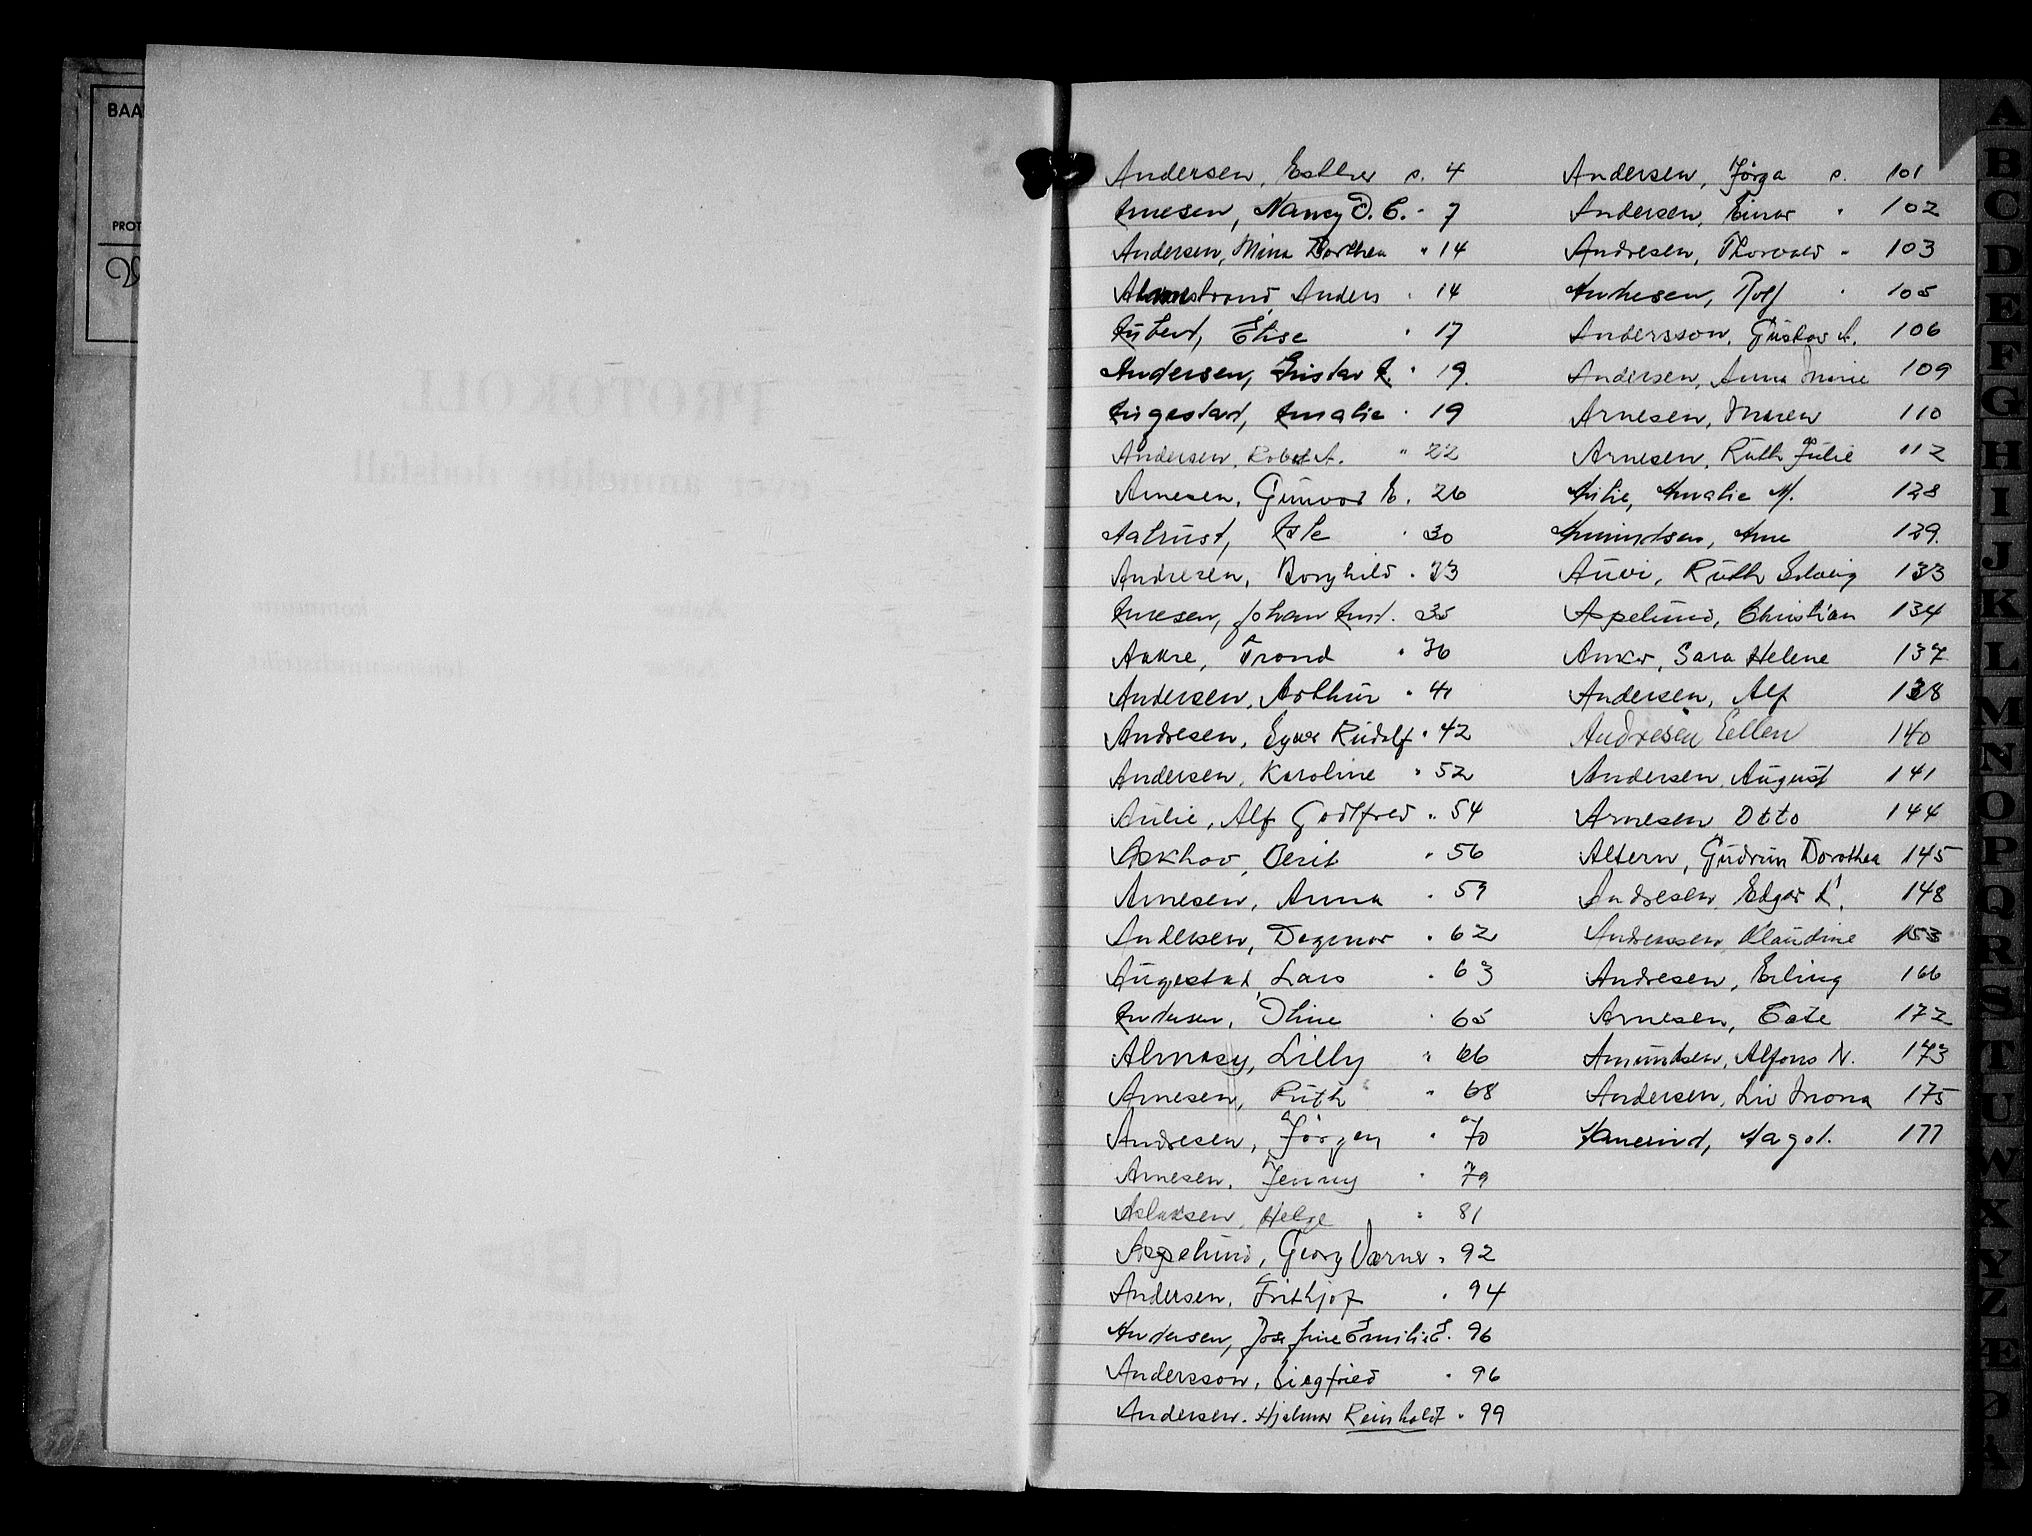 BAA
PROT
Andersen, Esther s. 4
Arnesen, Nancy D. C. " 7
Andersen, Mina Dorthea " 14
Anders " 14
Aubert, Elise " 17
Andersen, Gustav A. " 19.
Augestad, Amalie " 19
Andersen, Robert A. " 22
Arnesen, Gunvor E. 26
Aatrust, Asle " 30
Andresen, Borghild " 33
Arnesen, Johan Arnt. 35
Aakre, Trond " 36
Andersen, Arthur " 41
Andresen, Egner Rudolf " 42
Andersen, Karoline " 52
Aulie, Alf Godtfred " 54
Askhov, Berit " 56
Arnesen, Anna " 59
Andersen, Dagmar " 62
Augestad, Lars " 63
Andersen, Oline " 65
Almasy, Lilly " 66
Arnesen, Ruth " 68
Andresen, Jörgen " 70
Arnesen, Jenny " 79
Aslaksen, Helge " 81
Aspelund, Georg Verner " 92
Andersen, Frithjof " 94
Andersen, Josefine Emilie E. 96
Andersson, Siegfried " 96
Andersen. Hjalmar Reinholdt " 99
Andersen, Jörga s. 101
Andersen, Einar " 102
Andresen, Thorvald " 103
Andresen, Rolf " 105
Andersson, Gustav A. 106
Andersen, Anna Marie 109
Arnesen, Maren 110
Arnesen, Ruth Julie 112
Aulie, Amalie M. 128
Amundsen, Arne 129.
Auvi, Ruth Solveig 133
Aspelund, Christian 134
Anker, Sara Helene 137
Andersen, Alf 138
Andresen Ellen 140
Andersen, August 141
Arnesen Otto 144
Altern, Gudrun Dorothea 145
Andresen, Edgar A. 148
Andresen Klaudine 153
Andresen, Erling 166
Arnesen, Tate 172
Amundsen, Alfons N. 173
Andersen, Liv Mona 175
Aagot. 177
A
B
C
D
E
F
G
H
I
J
K
L
M
N
O
P
Q
R
S
T
U
W
X
Y
Z
Æ
Ø